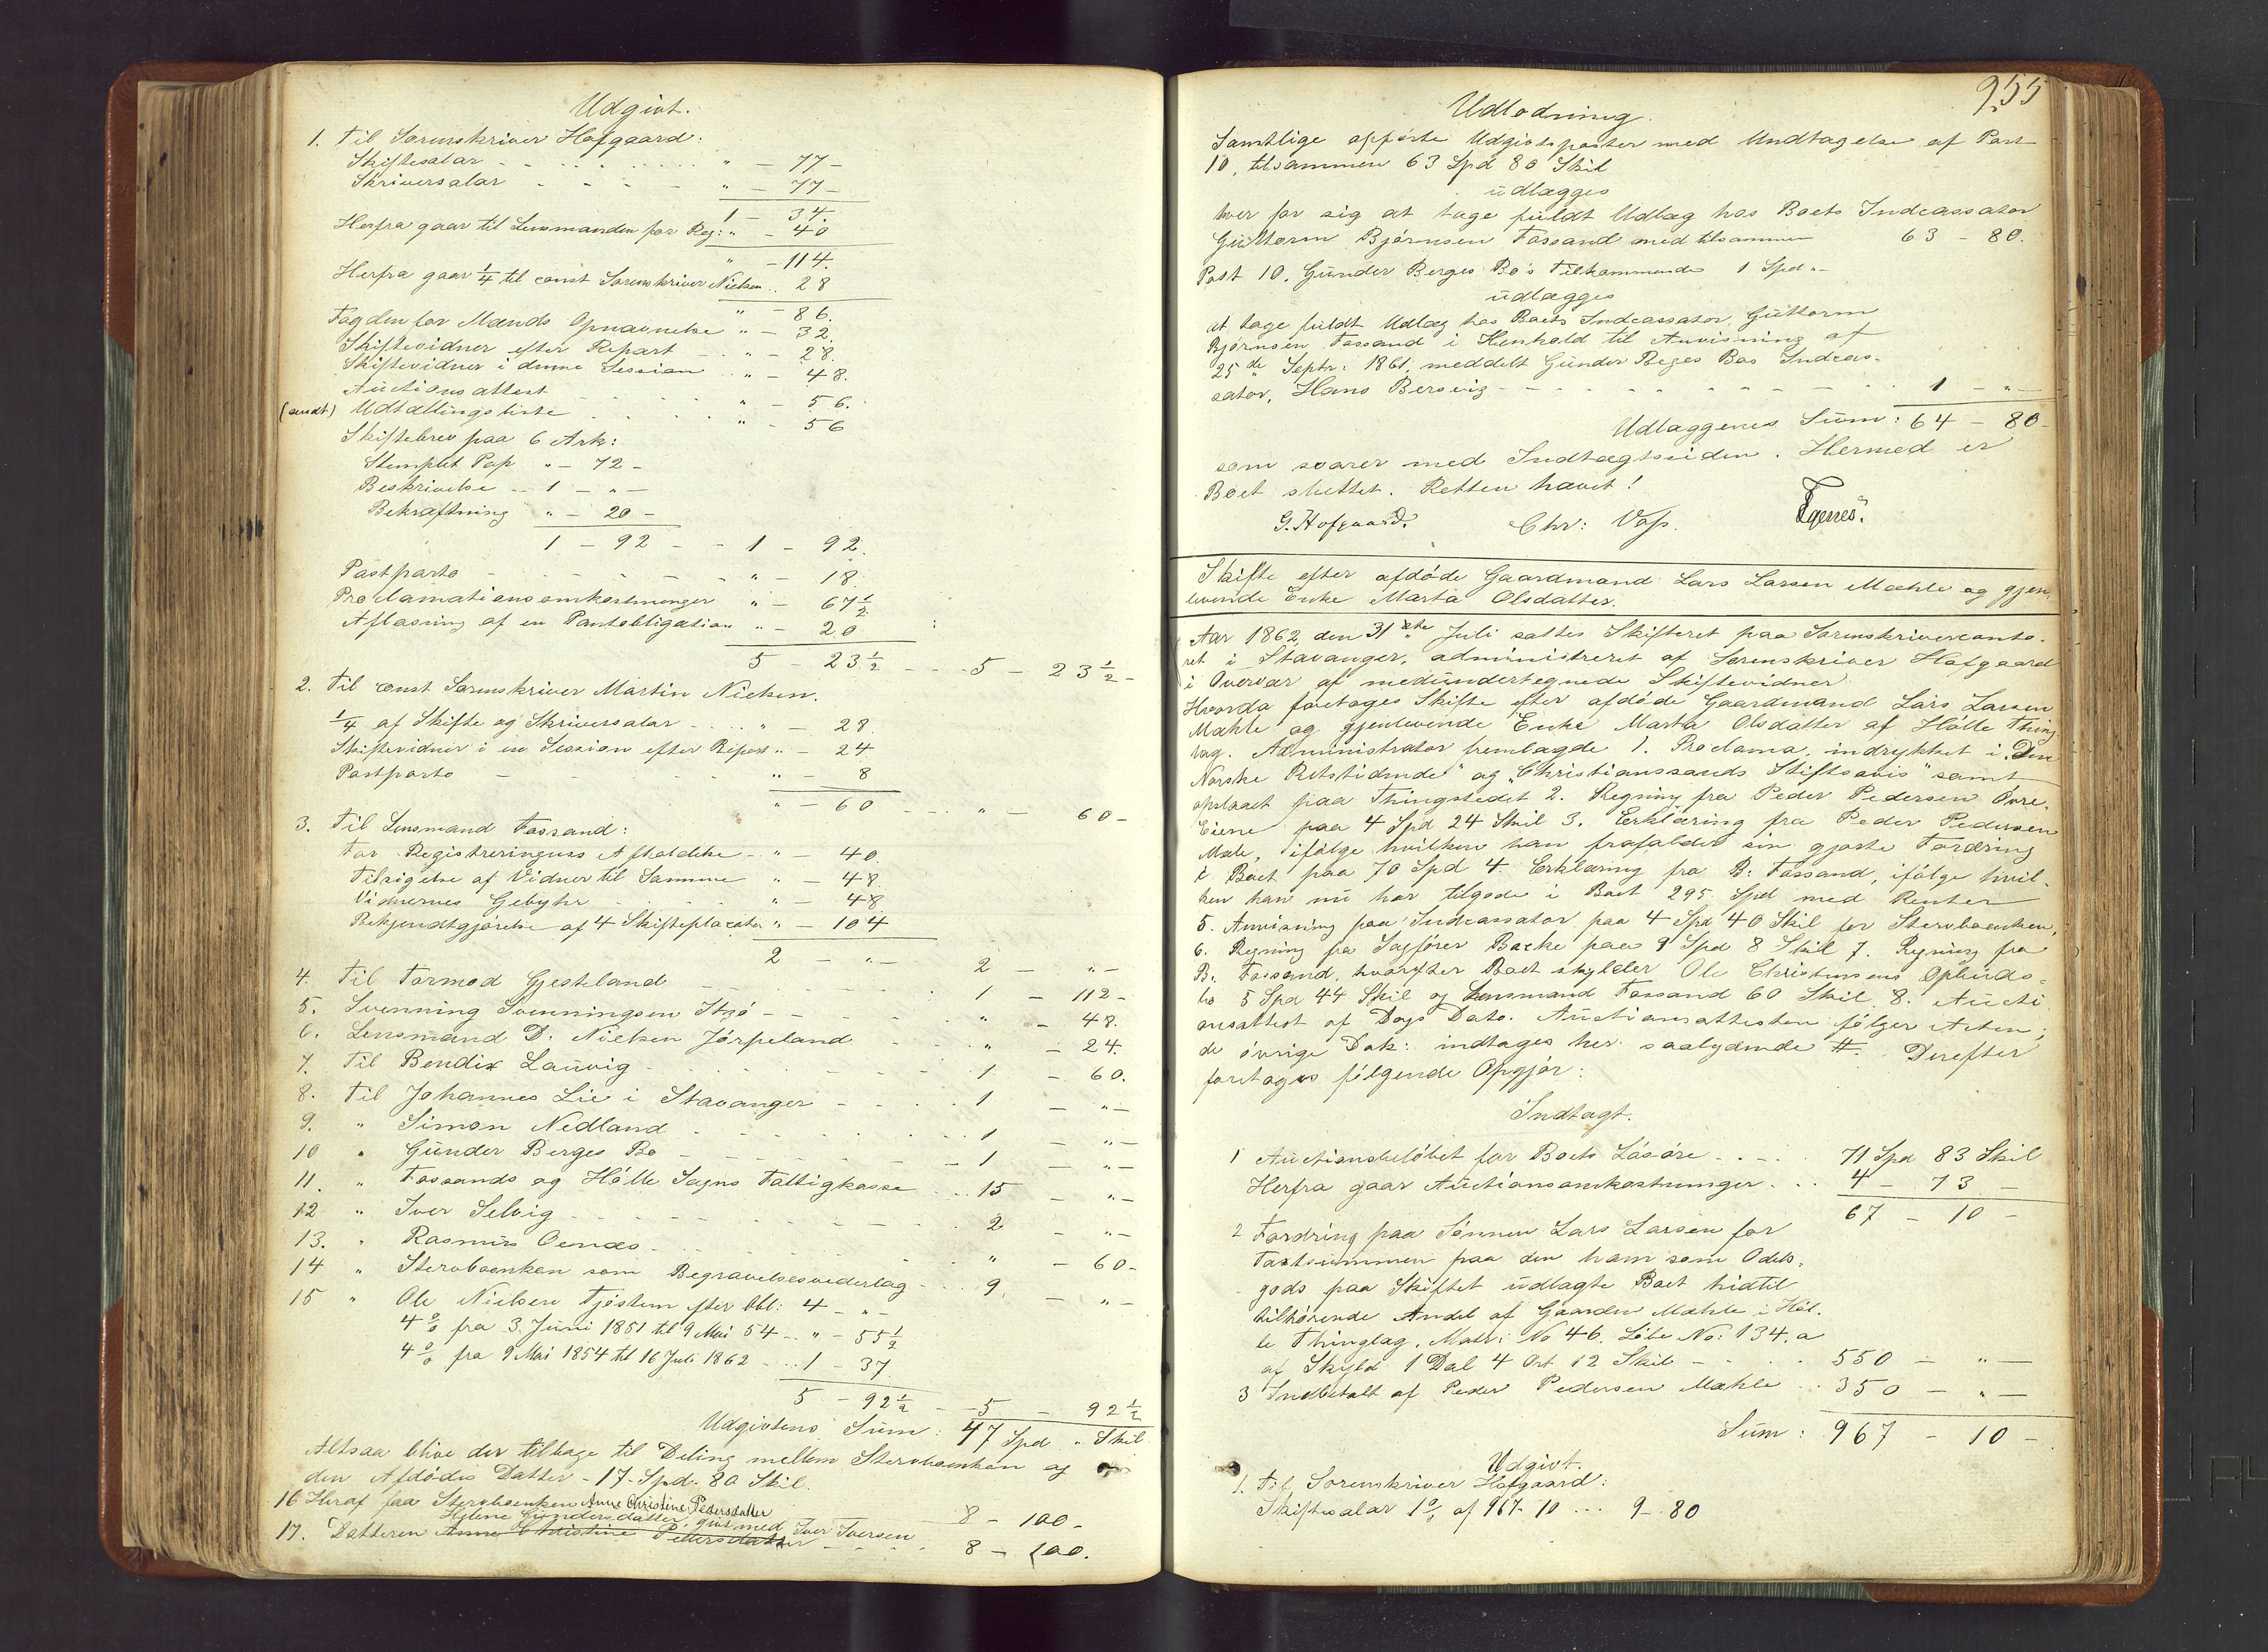 Udgivt.
1. Til Sorenskriver Hofgaard:
Skiftesalar - - - - - " - 77 -
Skriversalar - - - - " - 77 -
1 - 34.
Herfra gaar til Lensmanden for Reg: " - 40
" - 114.
Herfra gaar 1/4 til const Sorenskriver Nielsen .. 28
" - 86.
Fogden for Mænds Opnævnelse " - 32.
Skiftevidner efter Repart - - " - 28.
Skiftevidner i denne Session .. " - 48.
Auctionsattest - - - - " - 56.
(ændt) Udtællingsliste . . . . " - 56
Skiftebrev paa 6 Ark:
Stemplet Pap " - 72 -
Beskrivelse - 1 - " -
Bekræftning " - 20 -
1 - 92 - - 1 - 92.
Postporto - - - - - " - 18.
Proclamationsomkostninger " - 67 1/2
Aflæsning af en Pantobligation " - 20
5 - 23 1/2 - - - 5 - 23 1/2 -
2. Til const Sorenskriver Martin Nielsen.
1/4 af Skifte og Skriversalar - - " - 28.
Skiftevidner i en Session efter Repart " - 24
Postporto - - - " - 8
" - 60 - - " - 60 -
3. Til Lensmand Fossand:
For Registreringens Afholdelse - " - 40.
Tilsigelse af Vidner til Samme " - 48.
Vidnernes Gebyhr - - - " - 48
Bekjendtgjørelse af 4 Skifteplacater " - 104
2 - " - 2 - " -
4. Til Tormod Gjesteland - - - - 1 - 112 -
5. Svenning Svenningsen Idsø - - - - " - 48.
6. Lensmand D. Nielsen Jörpeland - - - " - 24.
7. Til Bendix Lauvig - - - - - 1 - 60.
8. Til Johannes Lie i Stavanger - - - 1 - " -
9. " Simon Nedland - - - - 1 - " -
10 " Gunder Berges Bo - - - - - 1 - " -
11. " Fossands og Hölle Sogns Fattigkasse . . 15 - " -
12 " Iver Selvig - - - - - 2 - " -
13. " Rasmus Oenæs - - - - " - 60 -
14 " Stervboenken som Begravelsesvederlag - 9 - " -
15 " Ole Nielsen Tjöstem efter Obl: 4 - " -
4 % fra 3. Juni 1851 til 9 Mai 54 - " - 55 1/2
4 % fra 9 Mai 1854 til 16 Juli 1862 - - 1 - 37.
5 - 92 1/2 - 5 - 92 1/2
Udgivtens Sum: 47 Spd " Skil
Altsaa blive der tilbage til Deling mellem Stervboenken og
den Afdödes Datter - 17 - Spd. 80 Skil.
16 Heraf faa Stervboenken Anne Christine Pedersdatter 8 - 100 -
Helene Gundersdatter, givt med
17. Datteren Anne Christine Pedersdatter Iver Iversen - - 8 - 100.
255
Udlodning.
Samtlige opförte Udgivtsposter med Undtagelse af Post
10, tilsammen 63 Spd 80 Skil
udlægges
hver for sig at tage fuldt Udlæg hos Boets Indcassator
Guttorm Bjørnsen Fossand med tilsammen 63 - 80.
Post 10. Gunder Berges Bo's Tilkommende 1 Spd " -
udlægges
at tage fuldt Udlæg hos Boets Indcassator, Guttorm
Bjørnsen Fossand i Henhold til Anvisning af
25de Septr: 1861, meddelt Gunder Beges Bos Indcas-
sator, Hans Bersvig - - - - - - - - 1 - " -
Udlæggenes Sum: 64 - 80 -
som svarer med Indtægtssiden. Hermed er
Boet sluttet. Retten hævet!
G. Hofgaard. Chr: Vass. Egenes.
Skifte efter afdöde Gaardmand Lars Larsen Mæhle og gjen-
levende Enke Marta Olsdatter.
Aar 1862 den 31te Juli sattes Skifteret paa Sorenskrivercanto-
ret i Stavanger, administreret af Sorenskriver Hofgaard
i Overvær af medundertegnede Skiftevidner
Hvorda foretages Skifte efter afdöde Gaardmand Lars Larsen
Mæhle og gjenlevende Enke Marta Olsdatter af Hölle Thing-
lag. Administrator fremlagde 1. Proclama, indrykket i "Den
Norske Retstidende" og "Christianssands Stiftsavis" samt
opslaaet paa Thingstedet 2. Regning fra Peder Pedersen Övre-
Eiene paa 4 Spd 24 Skil 3. Erklæring fra Peder Pedersen
Mæle, ifølge hvilken han frafalder sin gjorte Fordring
i Boet paa 70 Spd 4. Erklæring fra B. Fossand, ifølge hvil-
ken han nu har tilgode i Boet 295 Spd med Renter
5. Anvisning paa Indcassator paa 4 Spd 40 Skil for Stervboenken,
6. Regning fra Sagförer Backe paa 9 Spd 8 Skil 7. Regning fra
B. Fossand, hvorefter Boet skylder Ole Christensens Opbuds-
bo 5 Spd 44 Skil og Lensmand Fossand 60 Skil. 8. Aucti-
onsattest af Dags Dato. Auctionsattesten følger Acten;
de övrige Dok: indtages her saalydende #. Derefter
foretages følgende Opgjör:
Indtægt.
1 Auctionsbelöbet for Boets Lösöre - - - 71 Spd 83 Skil
Herfra gaar Auctionsomkostninger . . . 4 - 73 -
67 - 10 -
2 Fordring paa Sønnen Lars Larsen for
Taxtsummen paa den ham som Odels-
gods paa Skiftet udlagte Boet hidtil
tilhörende Andel af Gaarden Mæhle i Höl-
le Thinglag, Matr: No 46. Löbe No: 134.a
af Skyld 1 Dal 4 Ort 12 Skil - . . . 550 - " -
3 Indbetalt af Peder Pedersen Mæhle . . 350 - " -
Sum: 967 - 10 -
Udgivt.
1. Til Sorenskriver Hofgaard:
Skiftesalar 1 % af 967 - 10 ... 9 - 80